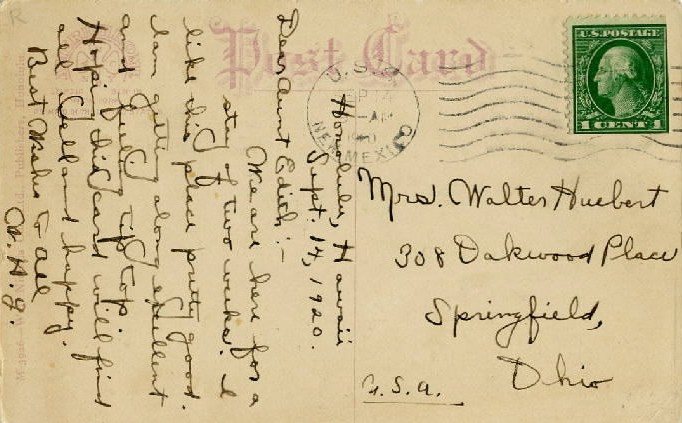 Post Card
U.S. POSTAGE
1 CENT 1
U.S.S.
AM
NEW MEXICO
Honolulu, Hawaii
Sept. 14, 1920.
Dear Aunt Edith:-
We are here for a
stay of two weeks. I
like this place pretty good.
Iam getting along excellent
and feeling tip top.
Hoping this card will find
all well and happy.
Best Wishes to all
W. H. G.
Mrs. Walter Huebert
308 Oakwood Place
Springfield,
Ohio
U.S.A.
R